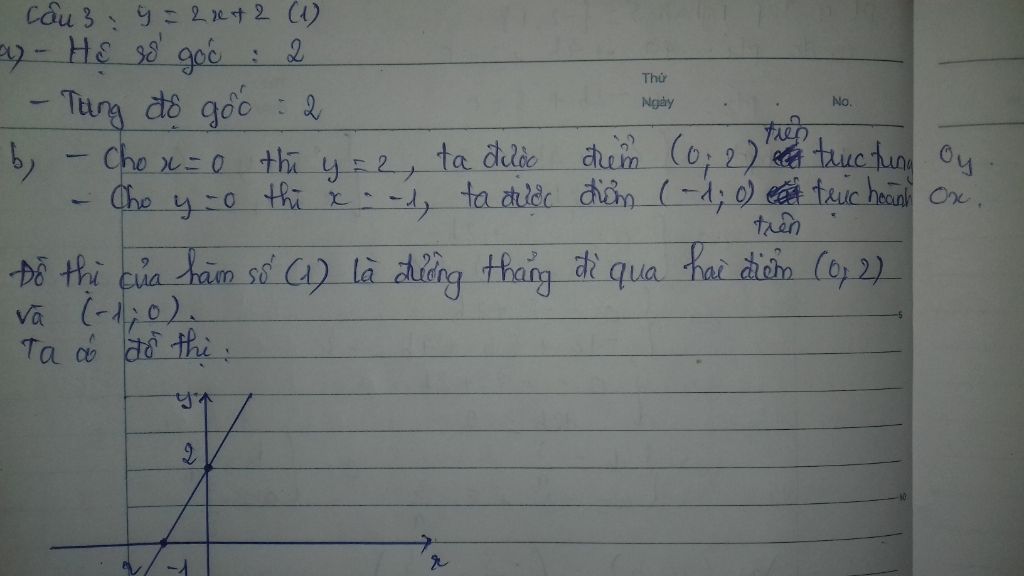 Câu 3 : y = 2x+2 (1)
a) - Hệ số góc : 2
Thứ
Ngày . . No.
- Tung độ gốc : 2
b) - Cho x=0 thì y=2, ta được điểm (0;2) trên trục tung Oy.
- Cho y=0 thì x=-1, ta được điểm (-1;0) trên trục hoành Ox.
Đồ thị của hàm số (1) là đường thẳng đi qua hai điểm (0;2)
và (-1;0).
5
Ta có đồ thị :
y
2
10
-1
x